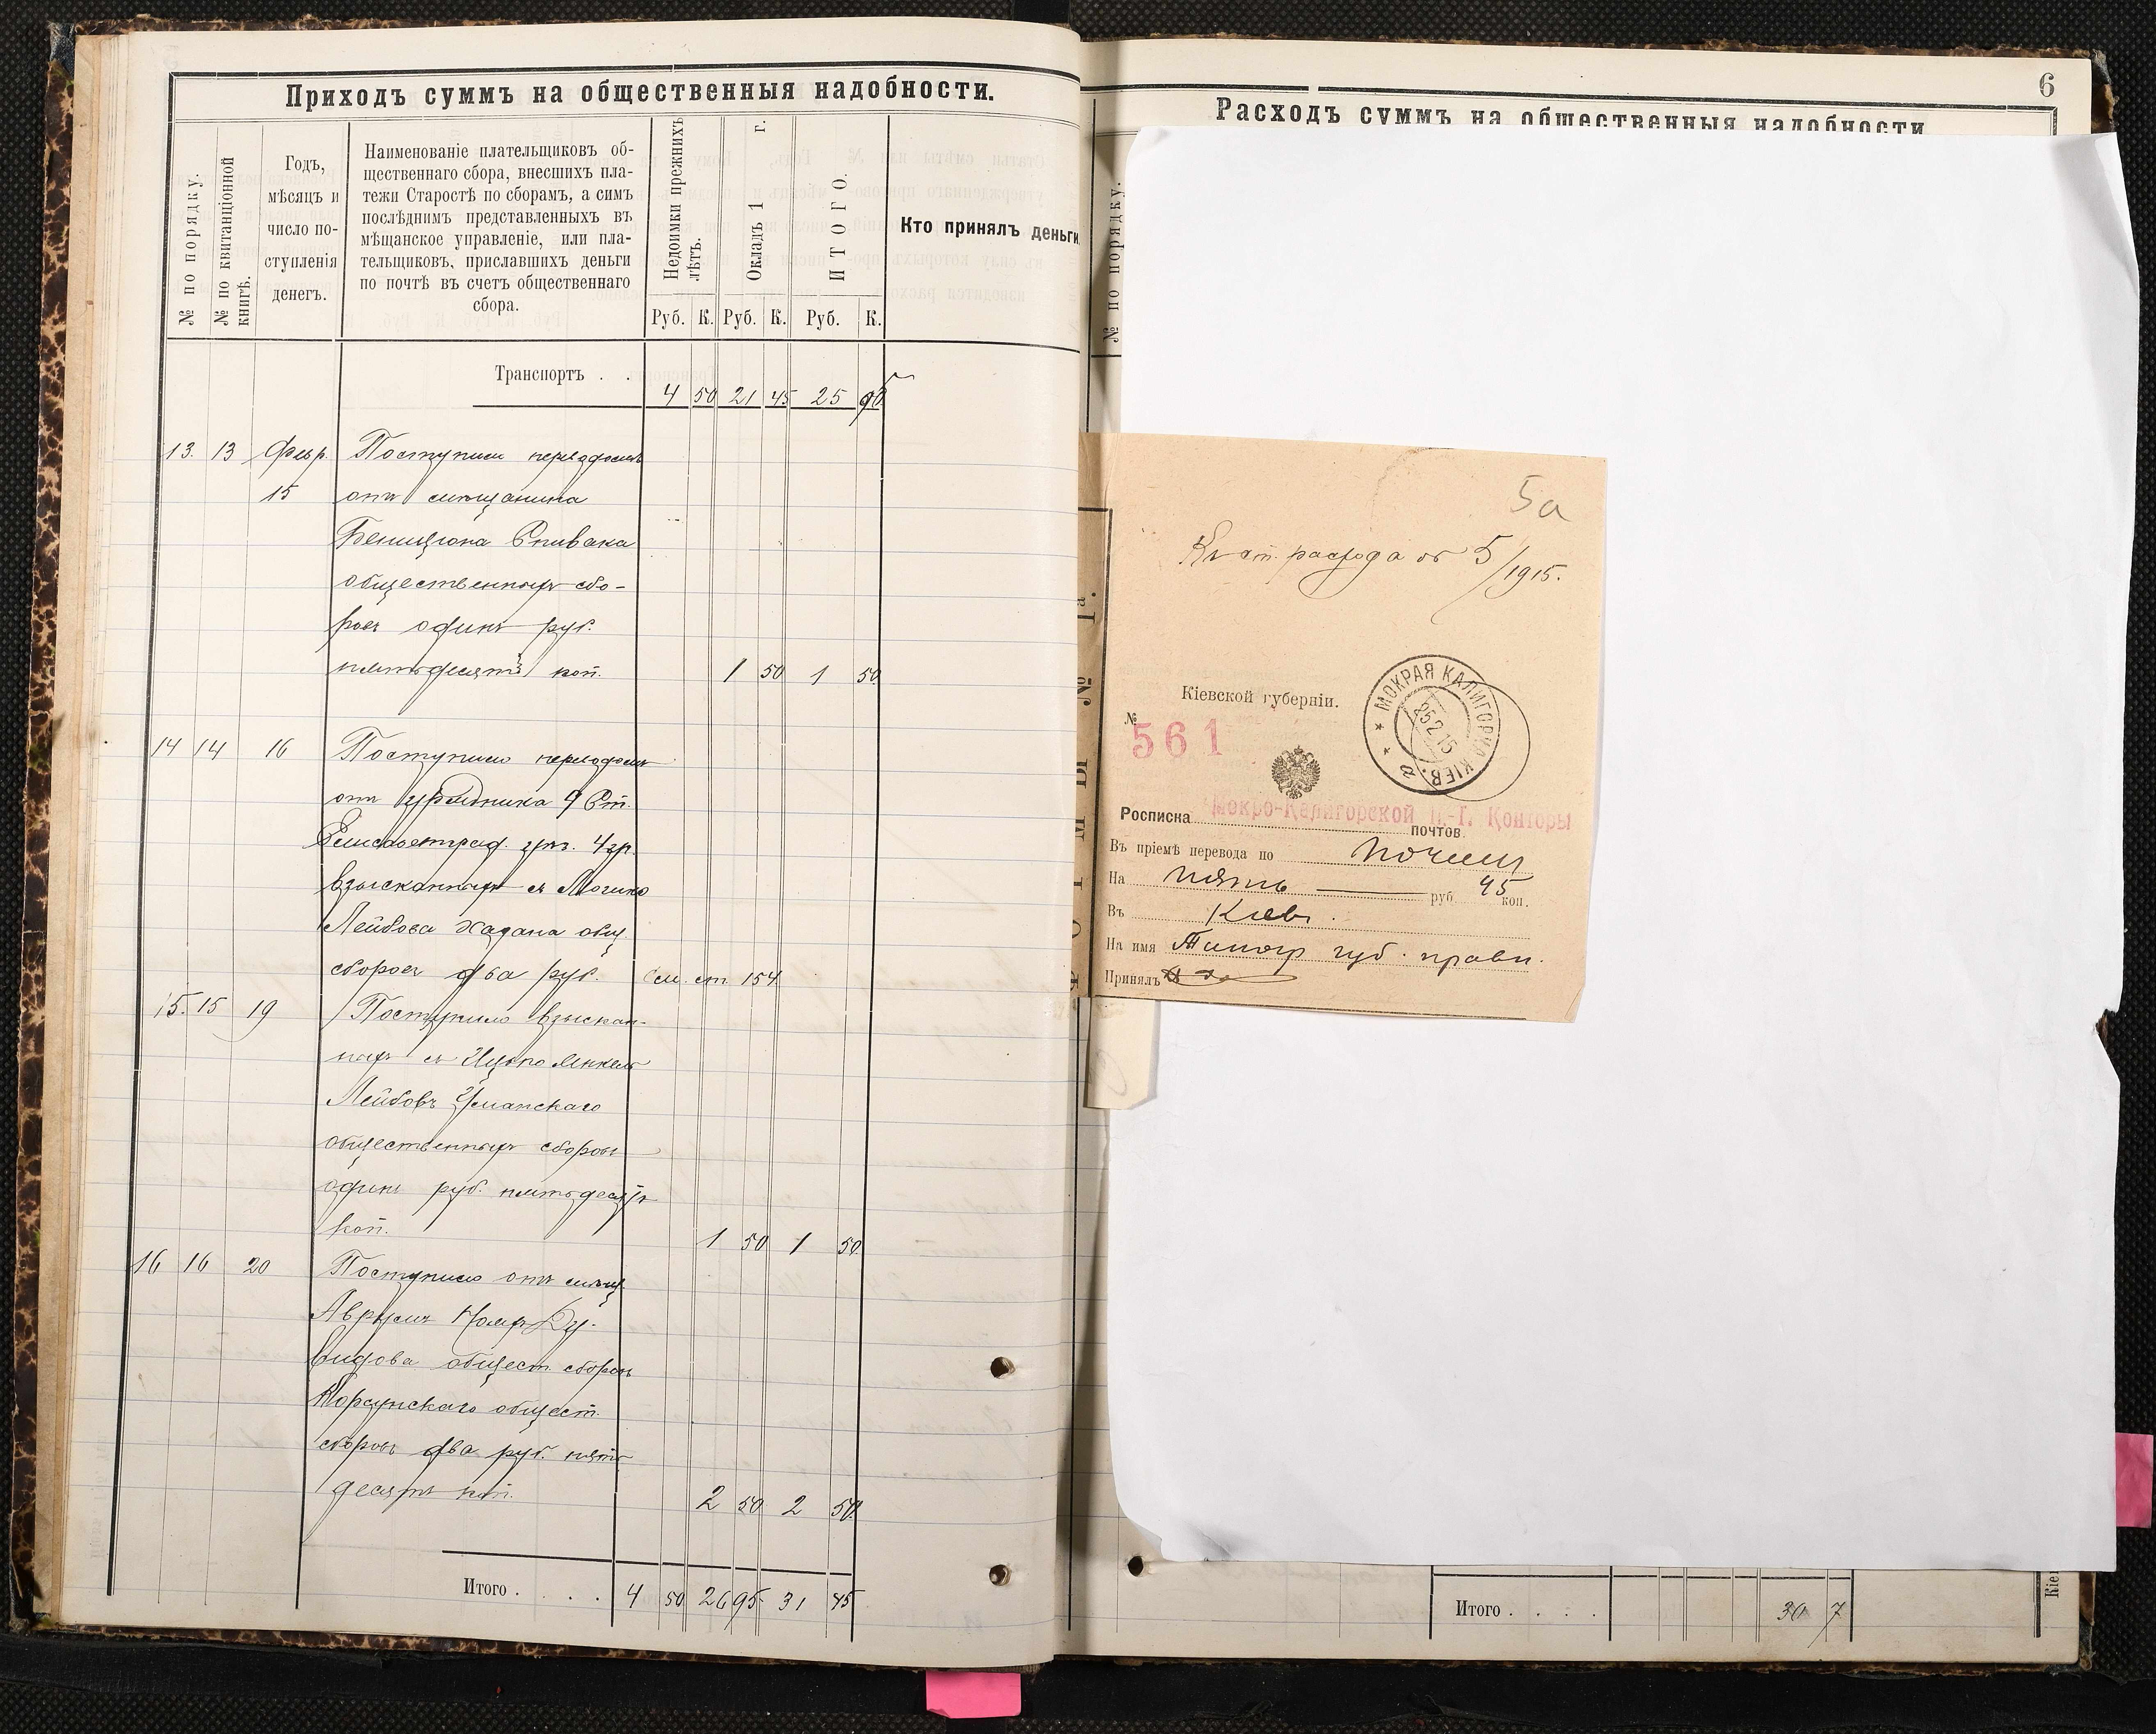 Приходъ суммъ на общественныя надобности.
№ по порядку.
№ по квитанціонной
книгѣ.
Годъ,
мѣсяцъ и
число по-
ступленія
денегъ.
Наименованіе плательщиковъ об-
щественнаго сбора, внесшихъ пла-
тежи Старостѣ по сборамъ, а симъ
послѣднимъ представленныхъ въ
мѣщанское управленіе, или пла-
тельщиковъ, приславшихъ деньги
по почтѣ въ счетъ общественнаго
сбора.
Недоимки прежнихъ
лѣтъ.
Окладъ 1 г.
ИТОГО.
Кто принялъ деньги
Руб. К. Руб. К. Руб. К.
Транспортъ . .
4 50 21 45 25 95
13. 13 Февр. Поступили переводомъ
15 отъ мѣщанина
Бенициона Спивака
общественныхъ сбо-
ровъ одинъ руб.
пятьдесятъ коп. 1 50 1 50
14 14 16 Поступило переводомъ
отъ урядника 9 Ст.
Елисаветград. у. 4 гр.
взысканныхъ съ
Лейбова Хадана общ.
сборовъ два руб. См. ст. 154
15. 15 19 Поступило взыскан-
ныхъ съ Ицько Янкель
Лейбовъ Уманскаго
общественныхъ сборовъ
одинъ руб. пятьдесятъ
коп. 1 50 1 50
16 16 20 Поступило отъ мѣщ.
Аврумъ
общест. сборовъ
Корсунскаго общест.
сборовъ два руб. пять-
десятъ коп. 2 50 2 50
Итого . . . . 4 50 26 95 31 45
6
Расходъ суммъ на общественныя надобности
№ по порядку.
5а
Къ ст. расхода 5/1915.
Кіевской губерніи.
№ 561
МОКРАЯ КАЛИГОРКА КІЕВ.
25 2 15
а
Росписка Мокро-Калигорской П.-Т. Конторы
Въ пріемѣ перевода по почтов. почтѣ
На пять руб. 45 коп.
Въ Кіевъ.
На имя Типогр губ. правл.
Принялъ
Итого . . . . 30 7
Кіе